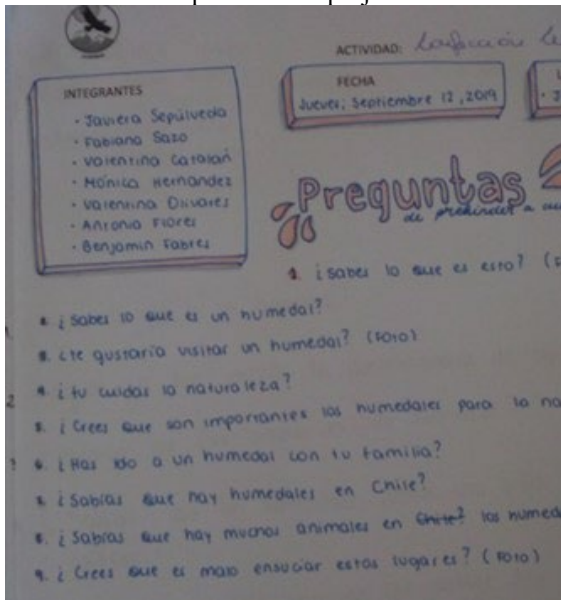 ACTIVIDAD:
INTEGRANTES
• Javiera Sepúlveda
• Fabiana Sazo
• Valentina Catalán
• Mónica Hernández
• Valentina Olivares
• Antonia Flores
• Benjamín Fabres
FECHA
Jueves; Septiembre 12, 2019
Preguntas
de prekinder a
1. ¿Sabes lo que es esto?
2. ¿Sabes lo que es un humedal?
3. ¿Te gustaría visitar un humedal? (Foto)
4. ¿tu cuidas la naturaleza?
5. ¿Crees que son importantes los humedales para la na
6. ¿Has ido a un humedal con tu familia?
7. ¿Sabías que hay humedales en Chile?
8. ¿Sabías que hay muchos animales en Chile? los humed
9. ¿Crees que es malo ensuciar estos lugares? (Foto)